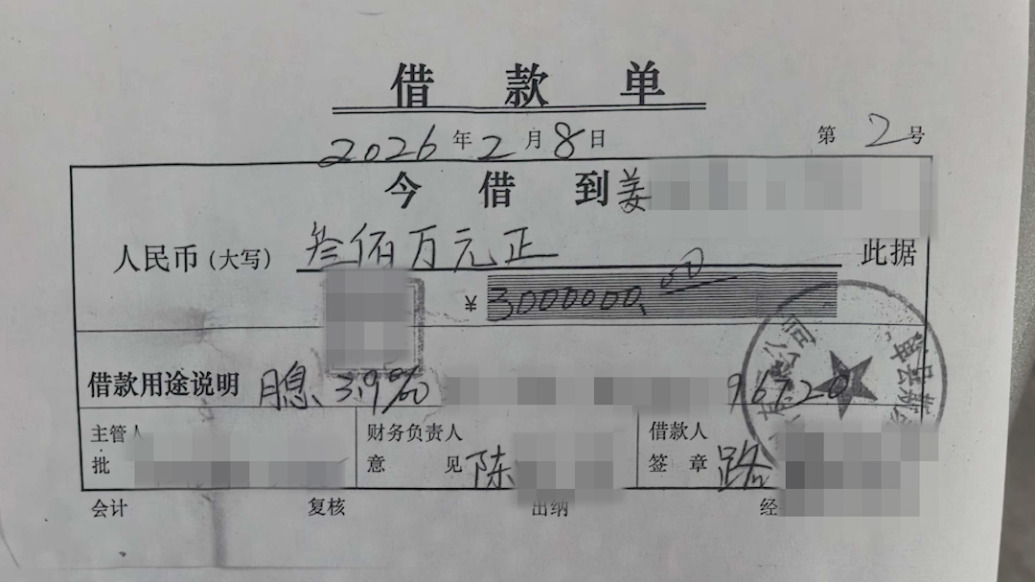 借款单
2026年2月8日 第2号
今借到姜
人民币（大写）叁佰万元正 此据
¥3000000.00
借款用途说明 月息3.9‰ 96720
主管人 财务负责人 借款人
批 意见 陈 签章 路
会计 复核 出纳 经